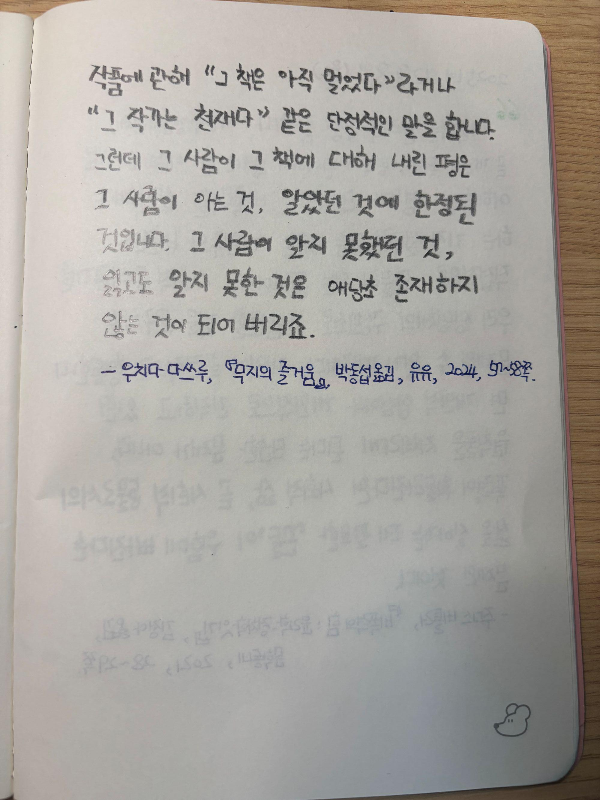 작품에 관해 “그 책은 아직 멀었다”라거나
“그 작가는 천재다” 같은 단정적인 말을 합니다.
그런데 그 사람이 그 책에 대해 내린 평은
그 사람이 아는 것, 알았던 것에 한정된
것입니다. 그 사람이 알지 못했던 것,
읽고도 알지 못한 것은 애당초 존재하지
않는 것이 되어 버리죠.
- 우치다 다쓰루, 『무지의 즐거움』, 박동섭 옮김, 유유, 2024, 57~58쪽.